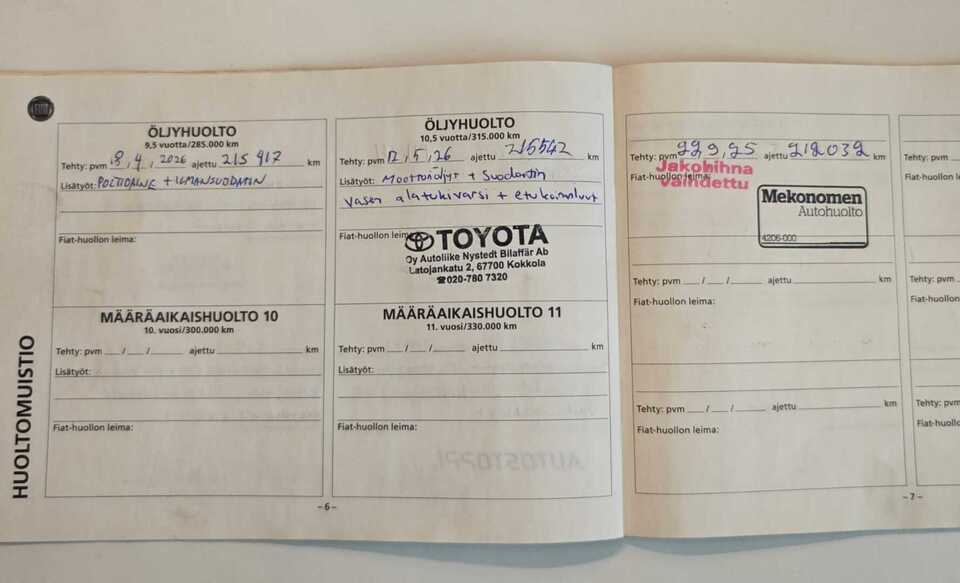 FIAT
HUOLTOMUISTIO
ÖLJYHUOLTO
9,5 vuotta/285.000 km
Tehty: pvm 8, 4, 2026 ajettu 215 417 km
Lisätyöt: POLTTOAINE + ILMANSUODATIN
Fiat-huollon leima:
MÄÄRÄAIKAISHUOLTO 10
10. vuosi/300.000 km
Tehty: pvm / / ajettu km
Lisätyöt:
Fiat-huollon leima:
ÖLJYHUOLTO
10,5 vuotta/315.000 km
Tehty: pvm 12, 5, 26 ajettu 215542 km
Lisätyöt: Moottoriöljyt + Suodatin
vasen alatukivarsi + etukoiranluut
Fiat-huollon leima:
TOYOTA
Oy Autoliike Nystedt Bilaffär Ab
Latojankatu 2, 67700 Kokkola
☎020-780 7320
MÄÄRÄAIKAISHUOLTO 11
11. vuosi/330.000 km
Tehty: pvm / / ajettu km
Lisätyöt:
Fiat-huollon leima:
– 6 –
Tehty: pvm 22 9, 25 ajettu 212032 km
Jakohihna
vaihdettu
Fiat-huollon leima:
Mekonomen
Autohuolto
4206-000
Tehty: pvm / / ajettu km
Fiat-huollon leima:
Tehty: pvm / / ajettu km
Fiat-huollon leima:
– 7 –
Tehty: pvm
Fiat-huollon
Tehty: pvm
Fiat-huollon
Tehty: pvm